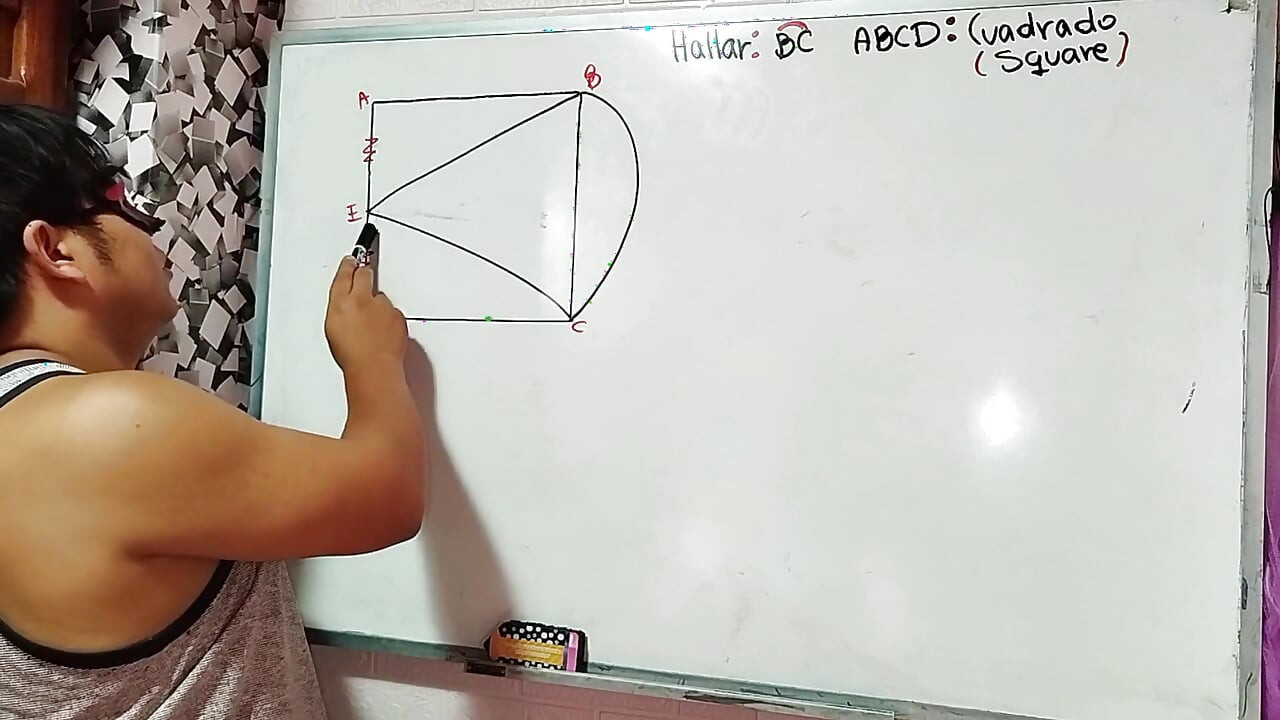 Hallar: BC ABCD: Cuadrado
(Square)
A
B
E
C